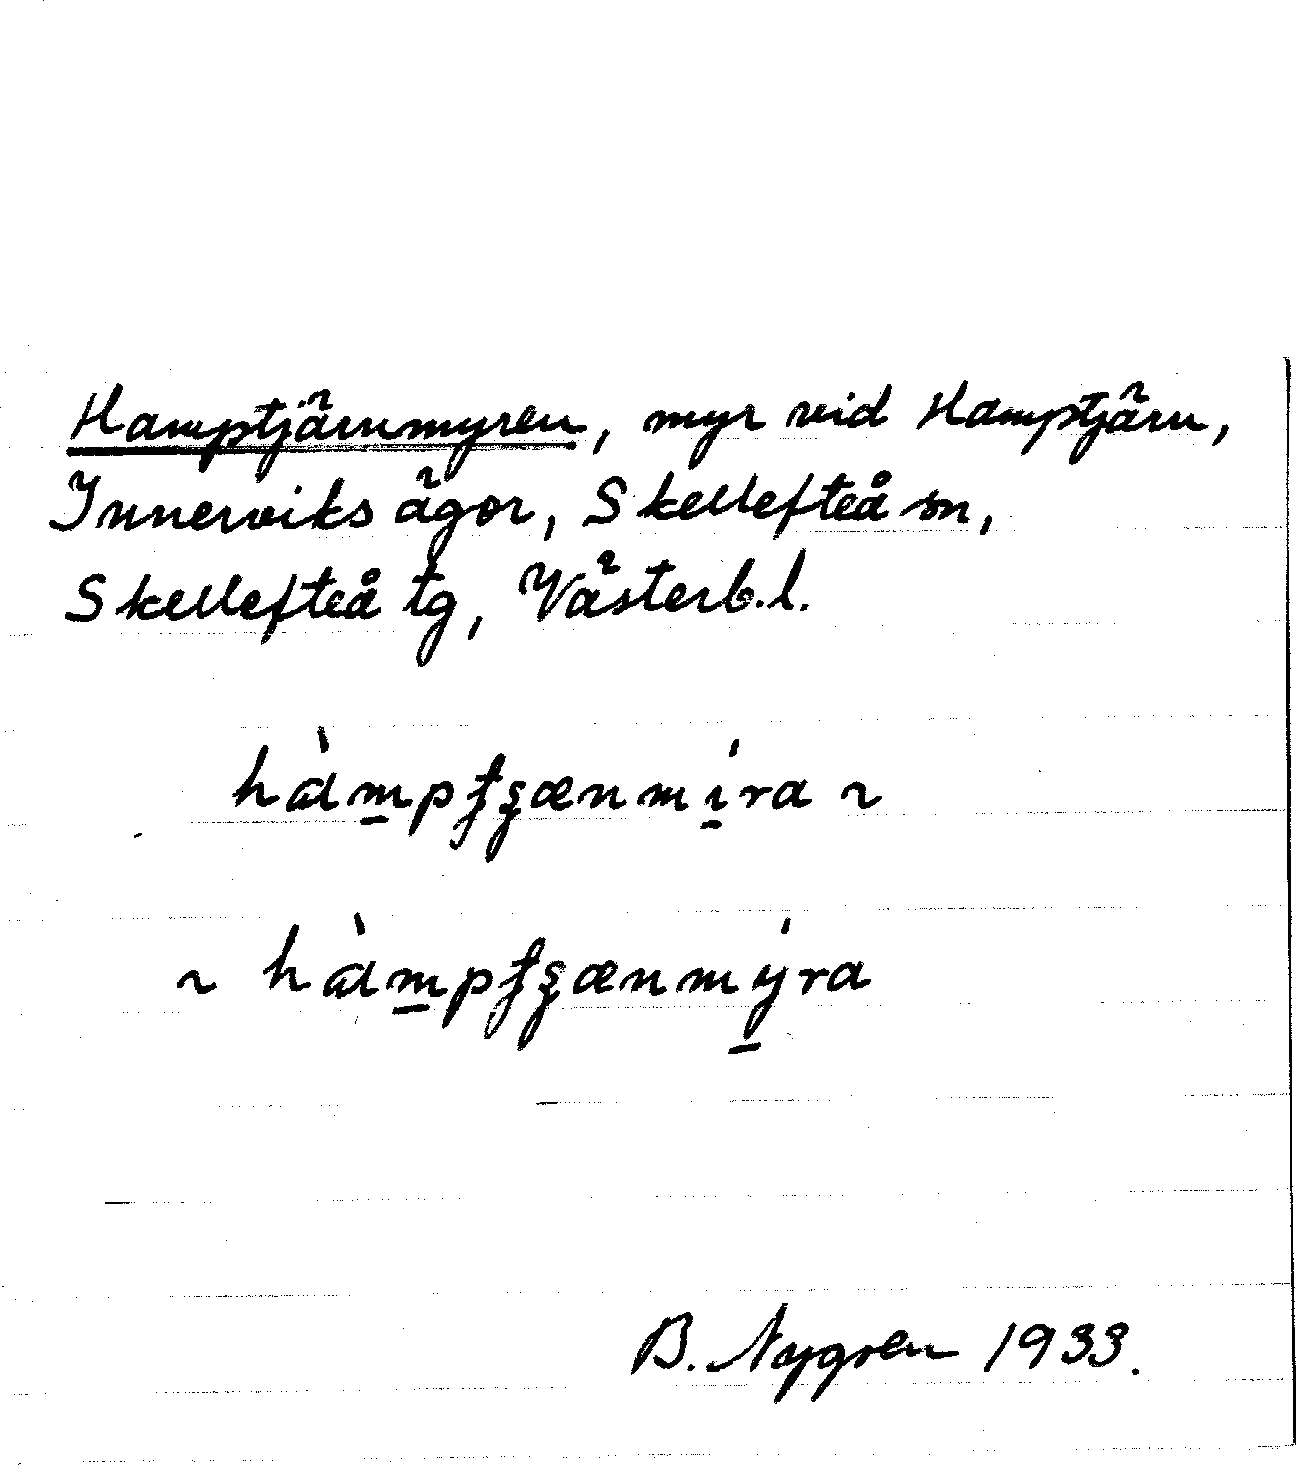 Hamptjärnmyren, myr vid Hamptjärn,
Innerviks ägor, Skellefteå sn,
Skellefteå tg, Västerb.l.
B. Nygren 1933.